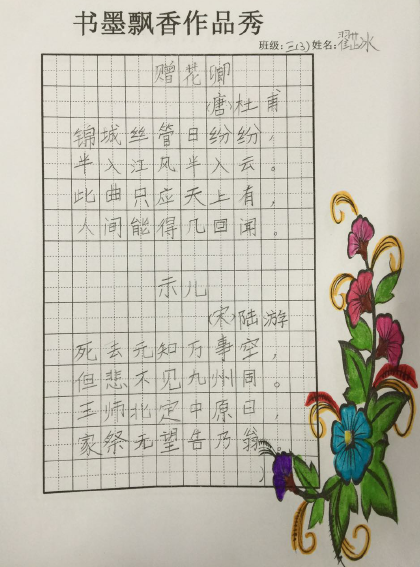 书墨飘香作品秀
班级:三(3)姓名:翟冰
赠花卿
(唐)杜甫
锦城丝管日纷纷,
半入江风半入云。
此曲只应天上有,
人间能得几回闻。
示儿
(宋)陆游
死去元知万事空,
但悲不见九州同。
王师北定中原日,
家祭无望告乃翁。